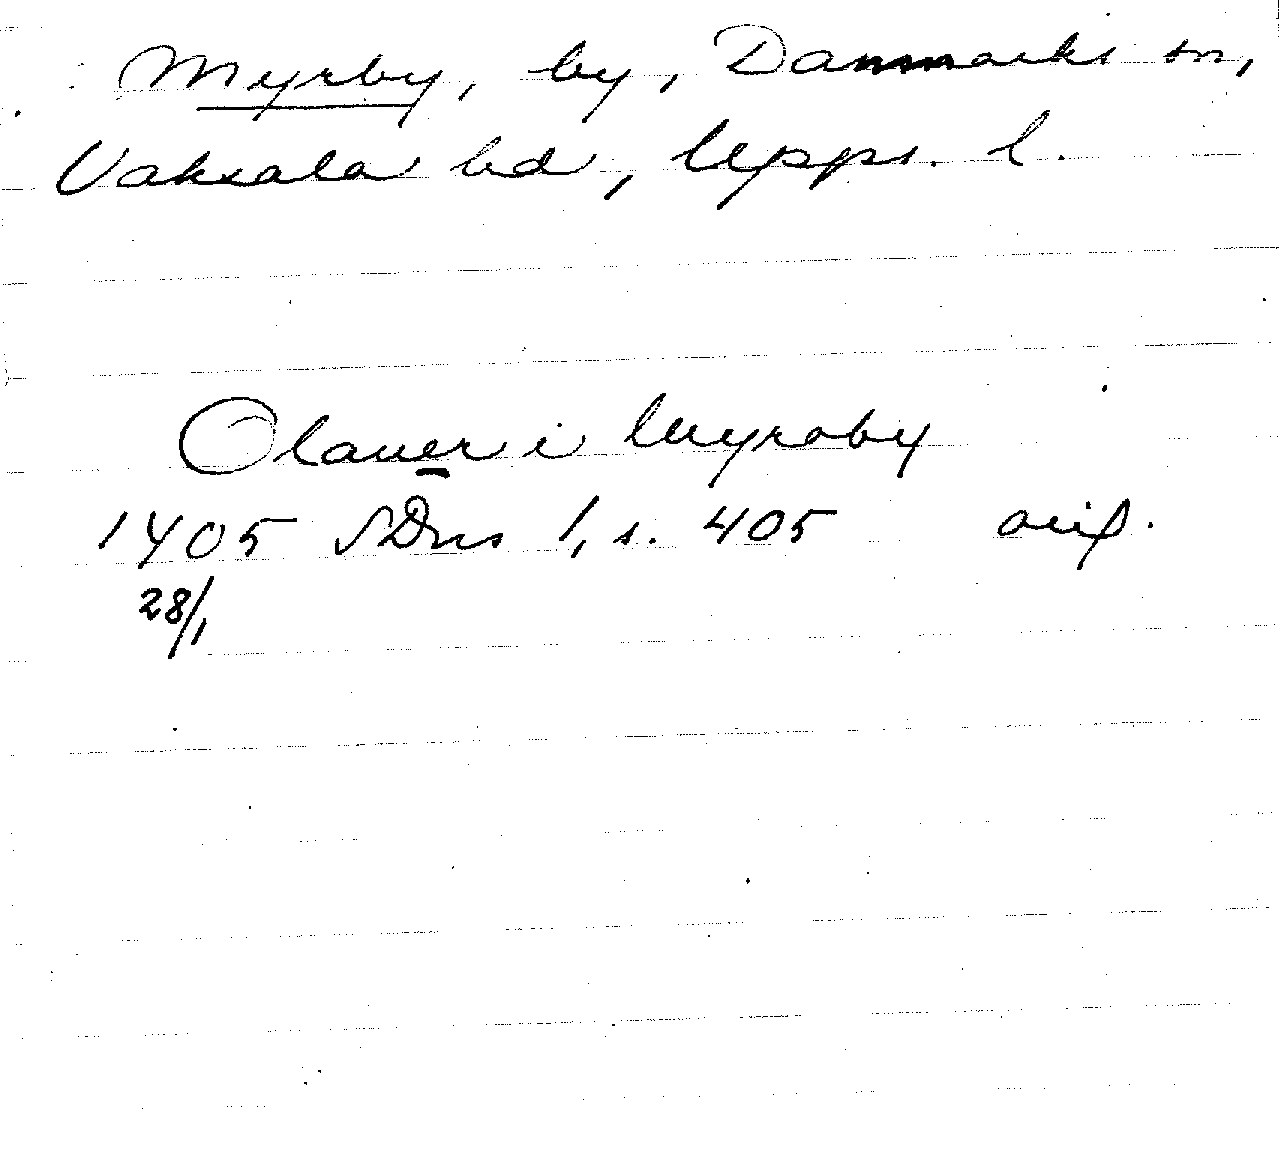 Myrby, by, Danmarks sn,
Vaksala hd, Upps. l.
Olauer i Myroby
1405 SDns 1, s. 405 avip.
28/1